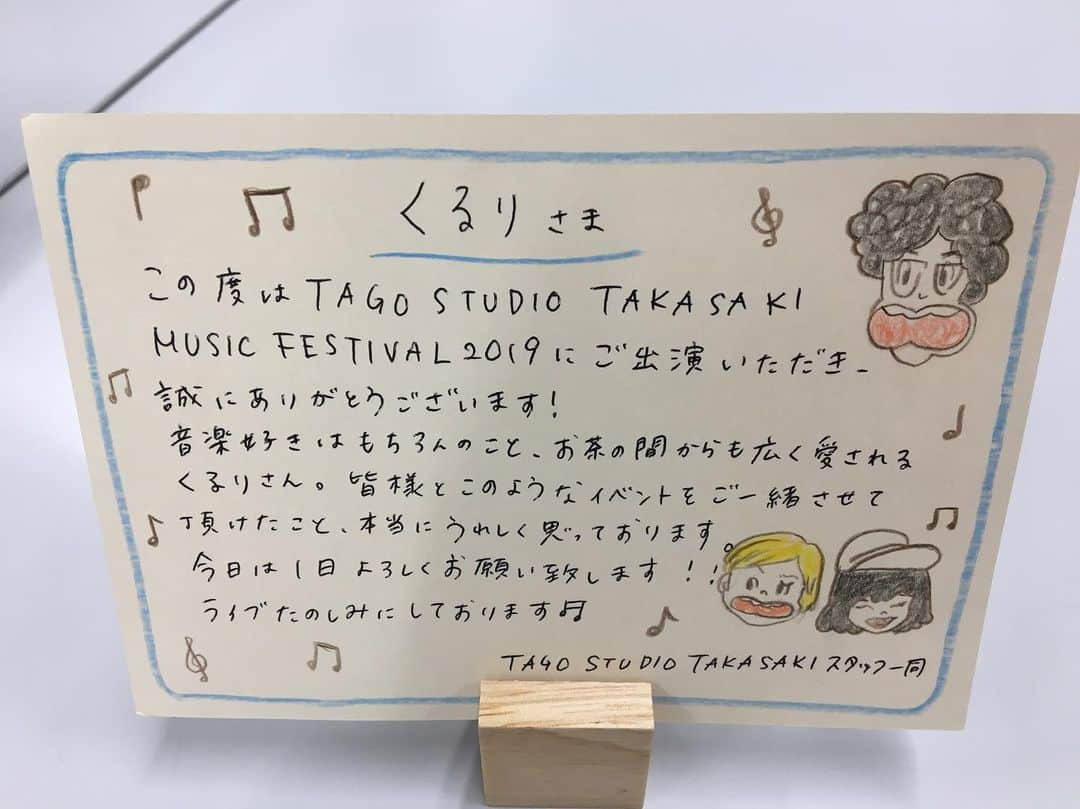 くるりさま
この度は TAGO STUDIO TAKASAKI
MUSIC FESTIVAL 2019 にご出演いただき、
誠にありがとうございます!
音楽好きはもちろんのこと、お茶の間からも広く愛される
くるりさん。皆様とこのようなイベントをご一緒させて
頂けたこと、本当にうれしく思っております。
今日は1日よろしくお願い致します!!
ライブたのしみにしております♬
TAGO STUDIO TAKASAKI スタッフ一同